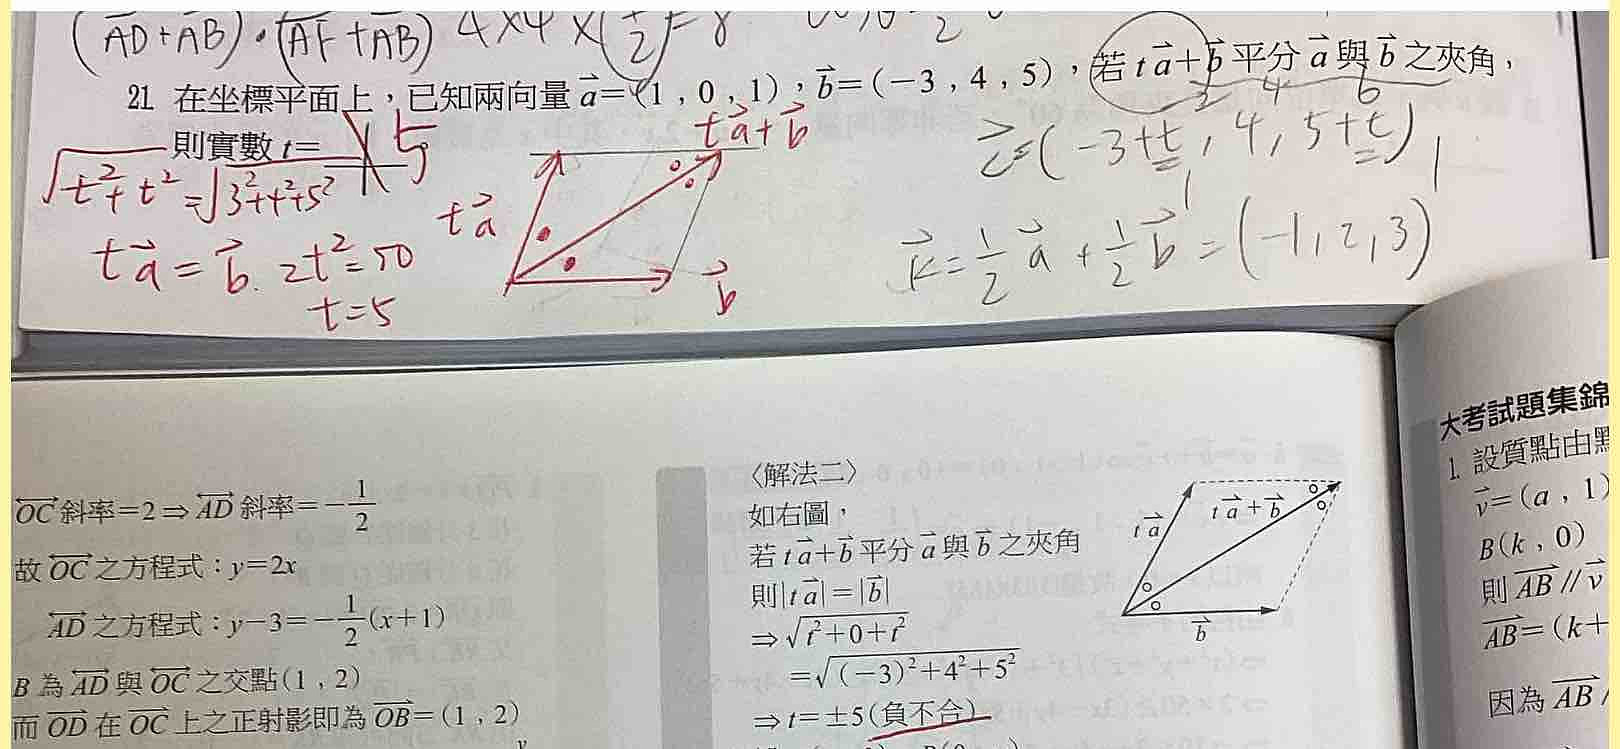 (AD+AB)·(AF+AB) 4×4×(1/2)=8
21 在坐標平面上，已知兩向量 a=(1，0，1)，b=(-3，4，5)，若 ta+b 平分 a 與 b 之夾角，
則實數 t=
5
√t²+t² =√3²+4²+5²
ta = b. 2t²=50
t=5
ta
ta+b
b
2 4 6
c=(-3+t, 4, 5+t)
k=1/2 a + 1/2 b = (-1, 2, 3)
OC 斜率=2 ⇒ AD 斜率=-1/2
故 OC 之方程式：y=2x
AD 之方程式：y-3=-1/2(x+1)
B 為 AD 與 OC 之交點(1，2)
而 OD 在 OC 上之正射影即為 OB=(1，2)
〈解法二〉
如右圖，
若 ta+b 平分 a 與 b 之夾角
則|ta|=|b|
⇒√t²+0+t²
=√(-3)²+4²+5²
⇒t=±5(負不合)
ta
ta+b
b
大考試題集錦
1. 設質點由
v=(a，1)
B(k，0)
則 AB // v
AB=(k+
因為 AB